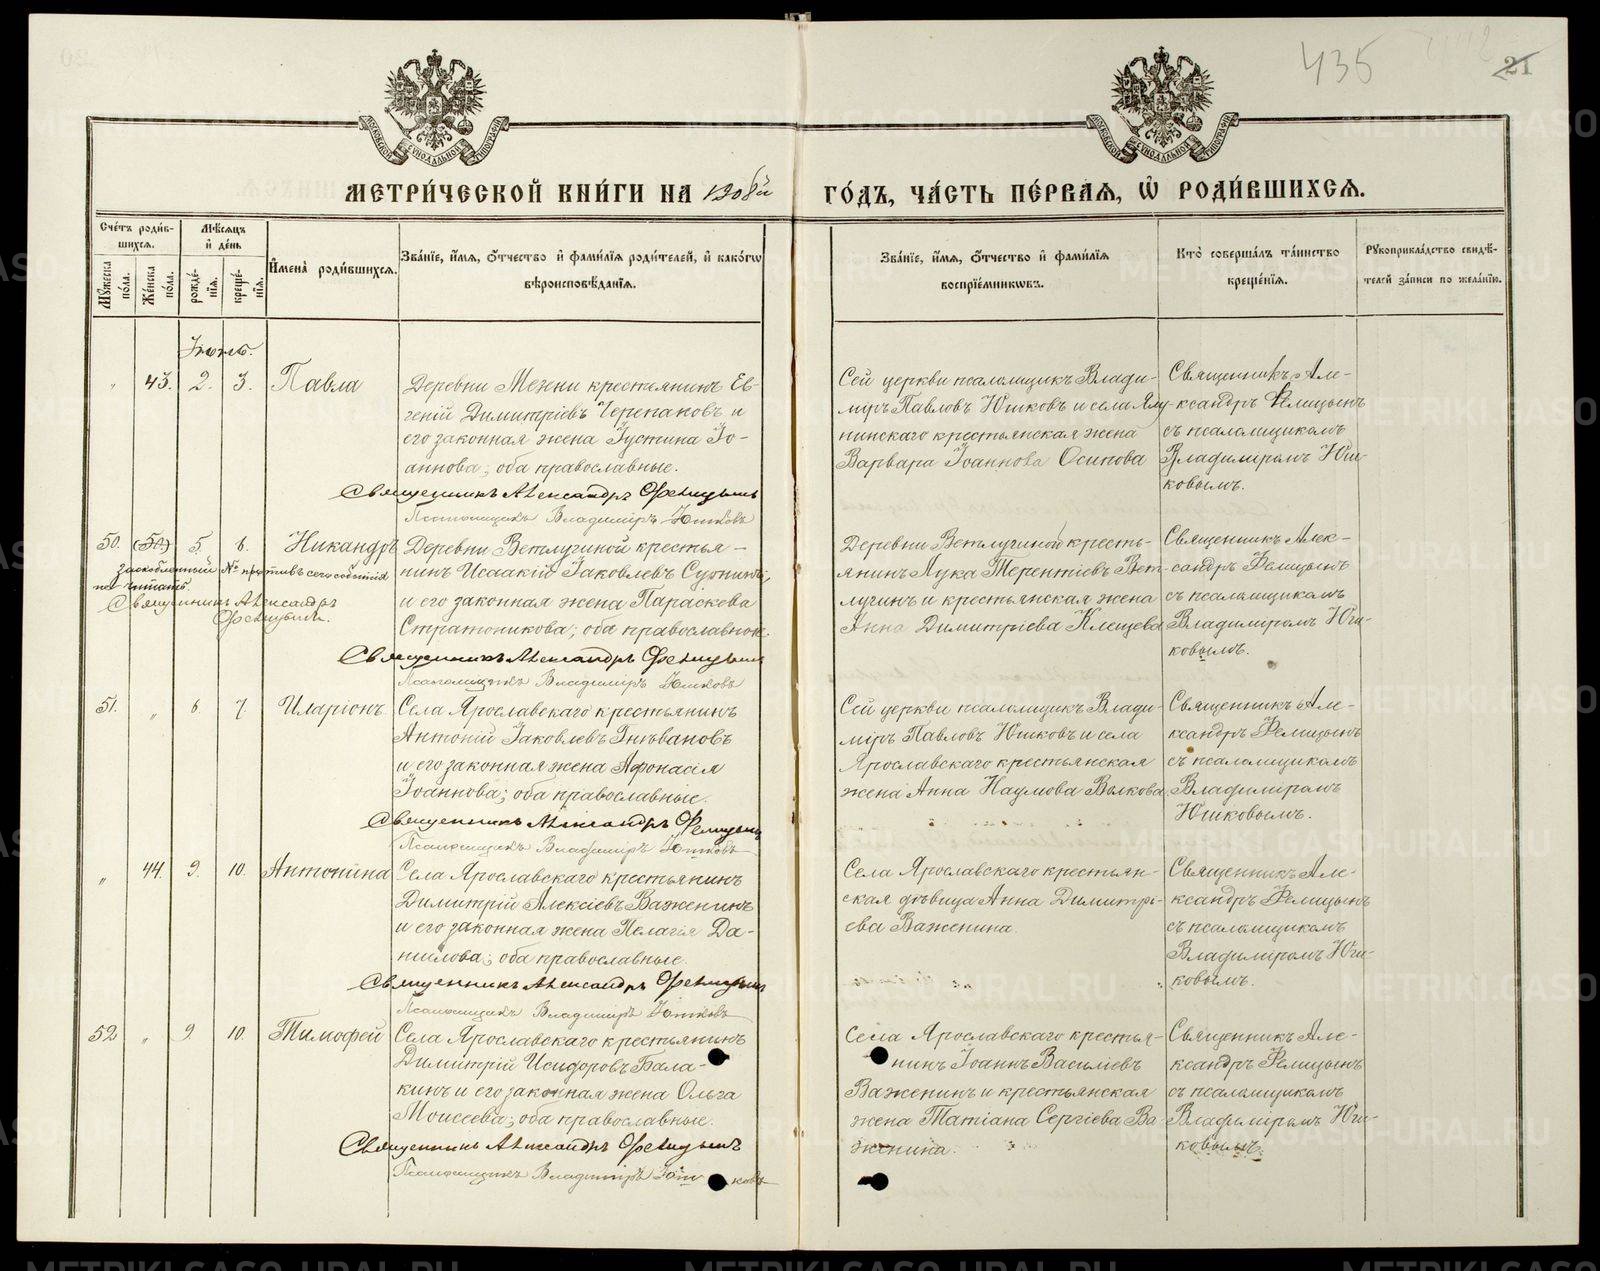 435
21
МОСКОВСКОЙ СѴНОДАЛЬНОЙ ТИПОГРАФІИ
МОСКОВСКОЙ СѴНОДАЛЬНОЙ ТИПОГРАФІИ
МЕТРИ́ЧЕСКОЙ КНИ́ГИ НА 1908й ГО́ДЪ, ЧА́СТЬ ПЕ́РВАЯ, Ѡ҆ РОДИ́ВШИХСЯ.
Сче́тъ роди́в-
шихся.
Му́жеска по́ла.
Же́нска по́ла.
Мѣ́сяцъ
и҆ де́нь
рожде́-
нїя.
креще́-
нїя.
И҆мена̀ роди́вшихся.
Зва́нїе, и҆́мя, ѻ҆́тчество и҆ фами́лїя роди́телей, и҆ како́гѡ
вѣроисповѣ́данїя.
Зва́нїе, и҆́мя, ѻ҆́тчество и҆ фами́лїя
воспрїе́мниковъ.
Кто̀ соверша́лъ та́инство
креще́нїя.
Рꙋкоприкла́дство свидѣ́-
телей за́писи по жела́нїю.
Іюль.
„ 43. 2. 3. Павла
Деревни Мезени крестьянинъ Ев-
геній Димитріевъ Черепановъ и
его законная жена Іустина Іо-
аннова; оба православные.
Священникъ Александръ Фелицынъ
Псаломщикъ Владиміръ Юшковъ
Сей церкви псаломщикъ Влади-
міръ Павловъ Юшковъ и села Ялу-
нинскаго крестьянская жена
Варвара Іоаннова Осипова
Священникъ Але-
ксандръ Фелицынъ
съ псаломщикомъ
Владиміромъ Юш-
ковымъ.
50. (50) 5. 6. Никандръ
заскобленный № противъ сего события
не читать.
Священникъ Александръ
Фелицынъ.
Деревни Ветлугиной крестья-
нинъ Исаакій Іаковлевъ
и его законная жена Параскева
Стратоникова; оба православные.
Священникъ Александръ Фелицынъ
Псаломщикъ Владиміръ Юшковъ
Деревни Ветлугиной кресть-
янинъ Лука Терентіевъ Вет-
лугинъ и крестьянская жена
Анна Димитріева Клещева
Священникъ Алек-
сандръ Фелицынъ
съ псаломщикомъ
Владиміромъ Юш-
ковымъ.
51. „ 6. 7. Иларіонъ
Села Ярославскаго крестьянинъ
Антоній Іаковлевъ Гнѣвановъ
и его законная жена Афонасія
Іоаннова; оба православные.
Священникъ Александръ Фелицынъ
Псаломщикъ Владиміръ Юшковъ
Сей церкви псаломщикъ Влади-
міръ Павловъ Юшковъ и села
Ярославскаго крестьянская
жена Анна Наумова Волкова
Священникъ Але-
ксандръ Фелицынъ
съ псаломщикомъ
Владиміромъ
Юшковымъ.
„ 44. 9. 10. Антонина
Села Ярославскаго крестьянинъ
Димитрій Алексіевъ Важенинъ
и его законная жена Пелагія Да-
ніилова; оба православные.
Священникъ Александръ Фелицынъ
Псаломщикъ Владиміръ Юшковъ
Села Ярославскаго крестьян-
ская дѣвица Анна Димитрі-
ева Важенина.
Священникъ Але-
ксандръ Фелицынъ
съ псаломщикомъ
Владиміромъ Юш-
ковымъ.
52 „ 9. 10. Тимофей
Села Ярославскаго крестьянинъ
Димитрій Исидоровъ Бала-
кинъ и его законная жена Ольга
Моисеева; оба православные.
Священникъ Александръ Фелицынъ
Псаломщикъ Владиміръ Юшковъ
Села Ярославскаго крестья-
нинъ Іоаннъ Василіевъ
Важенинъ и крестьянская
жена Татіана Сергіева Ва-
женина.
Священникъ Але-
ксандръ Фелицынъ
съ псаломщикомъ
Владиміромъ Юш-
ковымъ.
METRIKI.GASO-URAL.RU